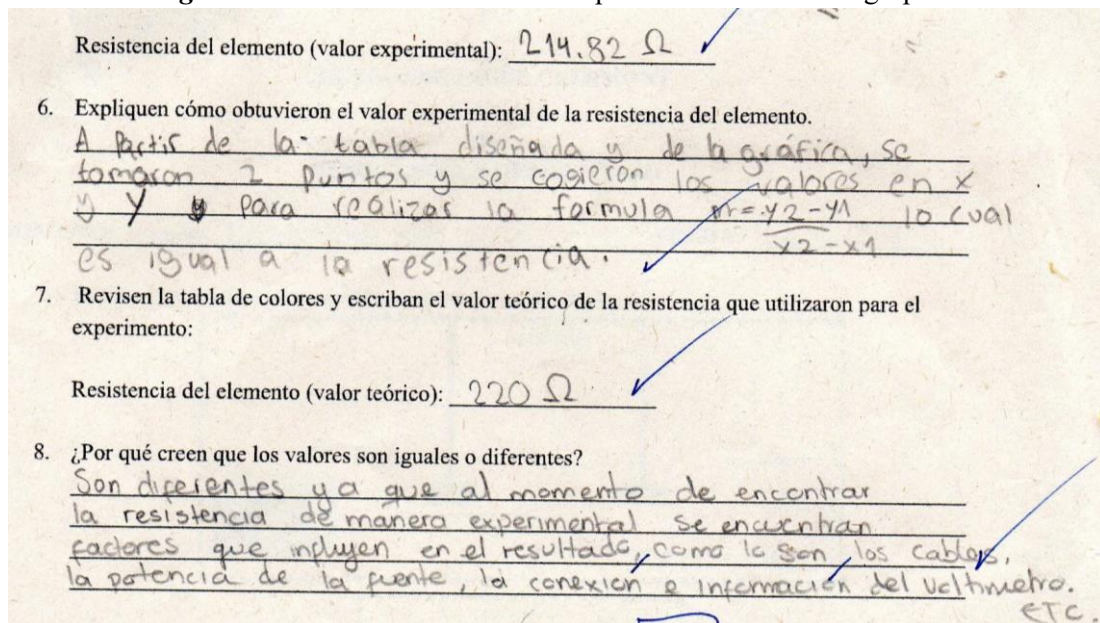 Resistencia del elemento (valor experimental): 214.82 Ω
6. Expliquen cómo obtuvieron el valor experimental de la resistencia del elemento.
A Partir de la tabla diseñada y de la gráfica, se
tomaron 2 puntos y se cogieron los valores en x
y y para realizar la formula m = y2-y1 lo cual
x2-x1
es igual a la resistencia.
7. Revisen la tabla de colores y escriban el valor teórico de la resistencia que utilizaron para el
experimento:
Resistencia del elemento (valor teórico): 220 Ω
8. ¿Por qué creen que los valores son iguales o diferentes?
Son diferentes ya que al momento de encontrar
la resistencia de manera experimental se encuentran
factores que influyen en el resultado, como lo son los cables,
la potencia de la fuente, la conexión e información del voltimetro.
ETC.